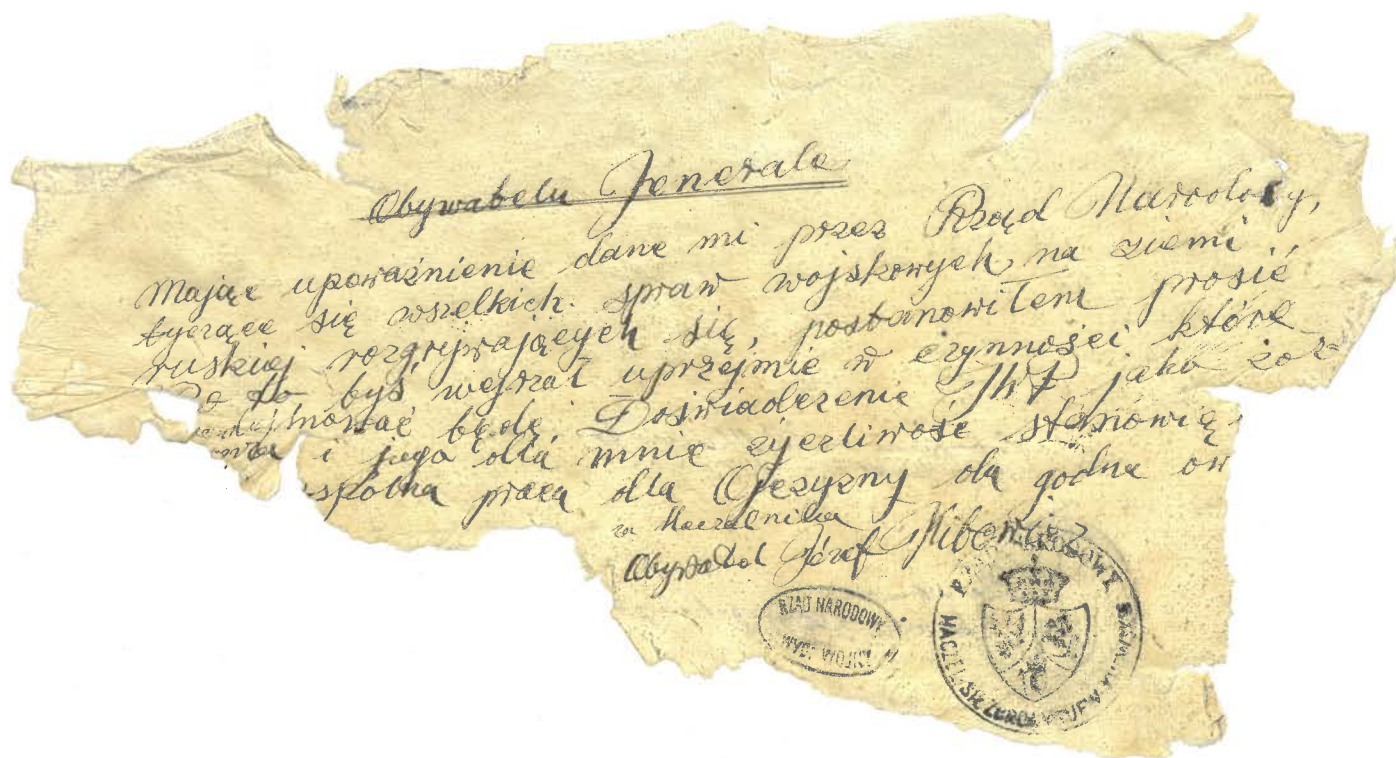 Obywatelu Jenerale
Mając upoważnienie dane mi przez Rząd Narodowy,
tyczące się wszelkich spraw wojskowych, na ziemi
ruskiej rozgrywających się, postanowiłem prosić
byś wejrzał uprzejmie w czynności które
będę. Doświadczenie JWP jako żoł-
i jego dla mnie życzliwość stanowią
praca dla Ojczyzny da godne ow
za Naczelnika
Obywatel Józef
RZĄD NARODOWY
WYDZ WOJSK
RZĄD NARODOWY
NACZEL. SIŁ ZBROJ.